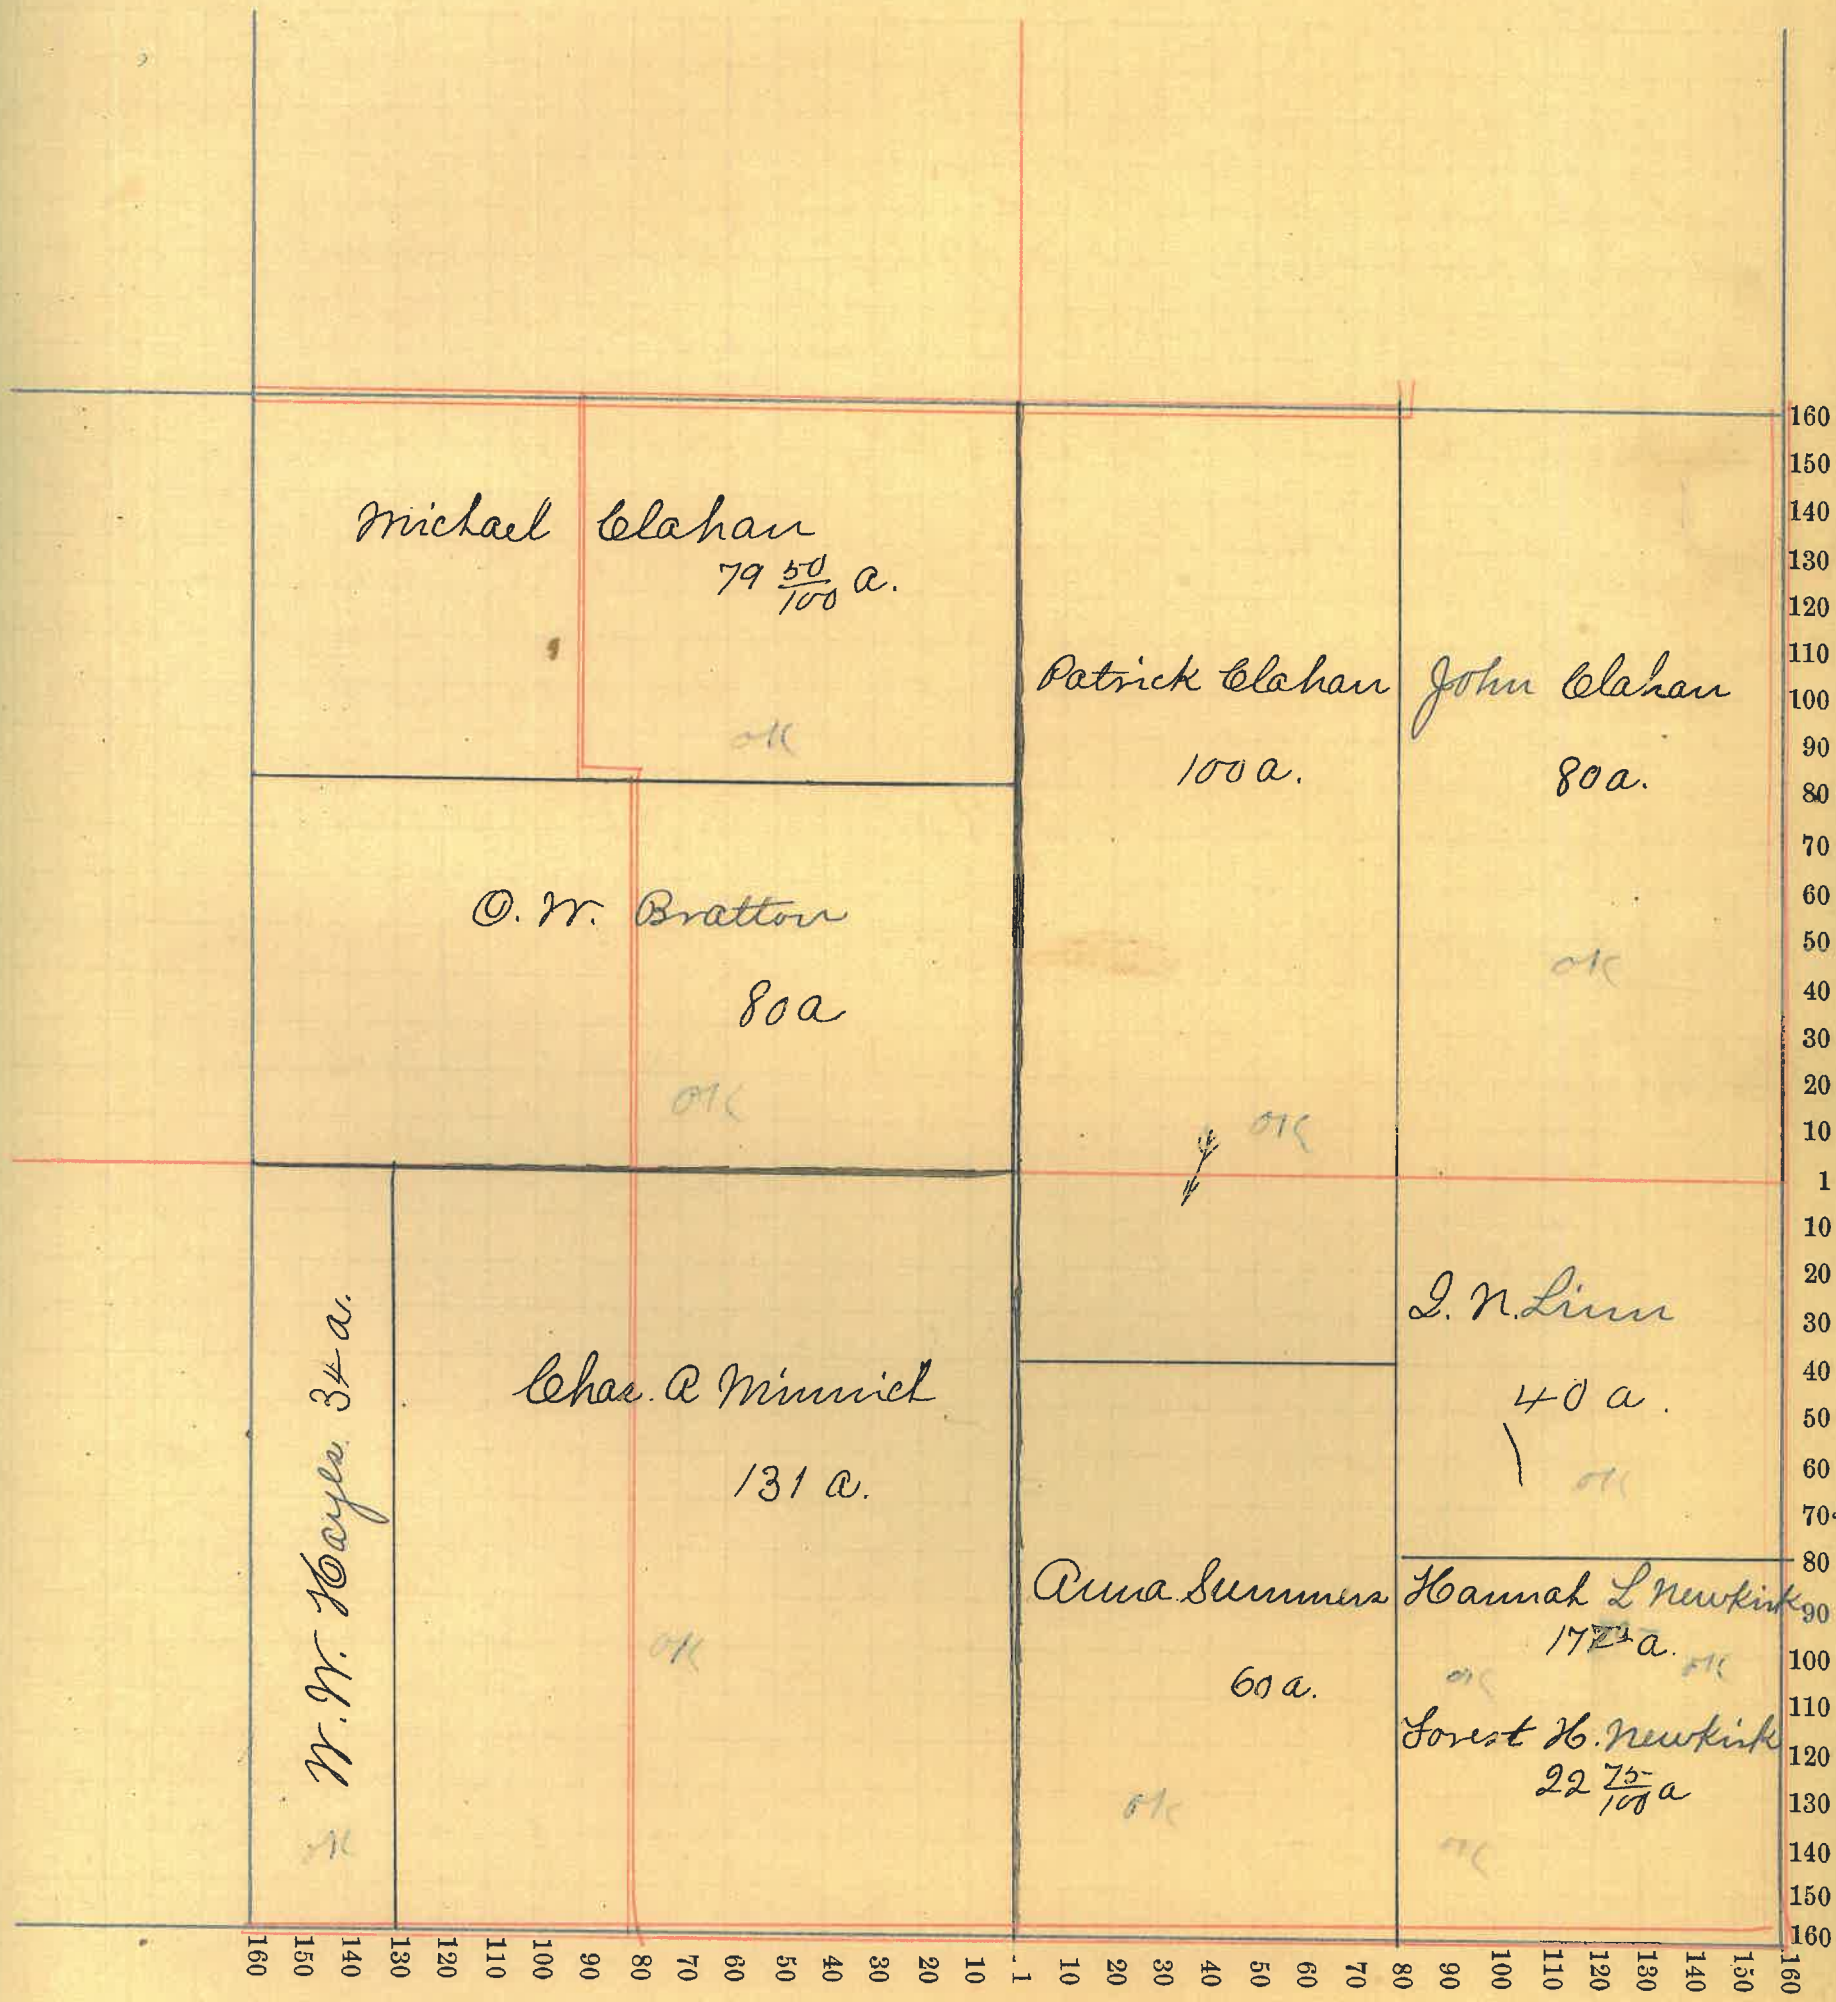 Michael Clahan
79 50/100 a.
OK
Patrick Clahan
100 a.
OK
John Clahan
80 a.
OK
O. W. Bratton
80 a
OK
W. W. Hayes 34 a.
OK
Chas. A Minnich
131 a.
OK
I. N. Linn
40 a.
OK
Anna Summers
60 a.
OK
Hannah L Newkirk
a.
OK
OK
Forest H. Newkirk
22 75/100 a
OK
160
150
140
130
120
110
100
90
80
70
60
50
40
30
20
10
1
10
20
30
40
50
60
70
80
90
100
110
120
130
140
150
160
160 150 140 130 120 110 100 90 80 70 60 50 40 30 20 10 1 10 20 30 40 50 60 70 80 90 100 110 120 130 140 150 160